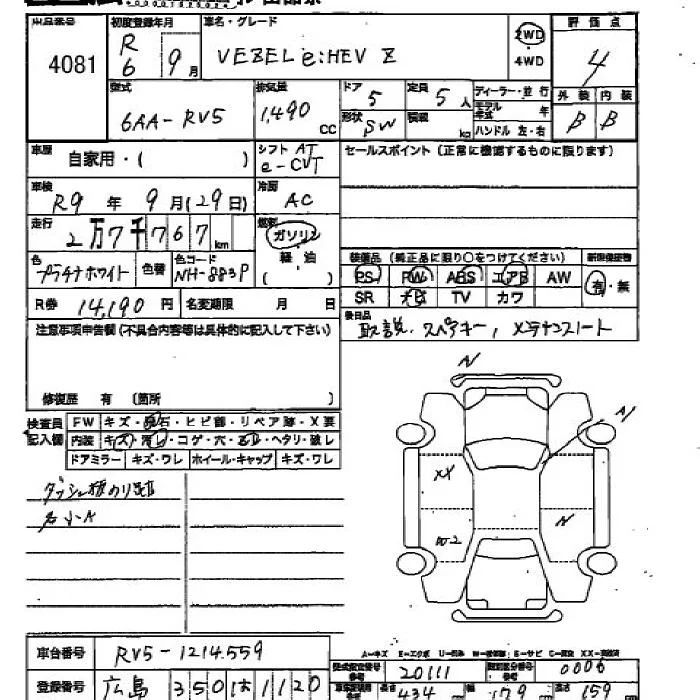 出品番号 4081
初度登録年月 R6 9月
車名・グレード VEZEL e:HEV Z
2WD
4WD
評価点 4
外装 内装
B B
型式 6AA-RV5
排気量 1,490 cc
ドア 5
定員 5人
形状 SW
積載 kg
ディーラー・並行
モデル年式 年
ハンドル 左・右
車歴 自家用・( )
シフト AT
e-CVT
セールスポイント(正常に機能するものに限ります)
車検 R9年9月(29日)
冷房 AC
走行 2万7千767km
燃料 ガソリン
軽油
( )
色 プラチナホワイト
色替
色コード NH-883P
装備品(純正品に限り○をつけてください)
新車保証書
PS PW ABS エアB AW
有・無
SR ナビ TV カワ
R券 14,190円
名変期限 月 日
後日品
取説、スペアキー、メンテナンスノート
注意事項申告欄(不具合内容等は具体的に記入して下さい)
修復歴 有 (箇所 )
検査員記入欄
FW キズ・飛石・ヒビ部・リペア跡・X要
内装 キズ・汚レ・コゲ・穴・ヘタリ・破レ
ドアミラー キズ・ワレ ホイール・キャップ キズ・ワレ
N
N
XX
W-2
N
車台番号 RV5-1214559
A=キズ E=エクボ
型式指定番号 20111
類別区分番号 0006
登録番号 広島 350 ほ 1120
長さ 434 cm 幅 179 高さ 159